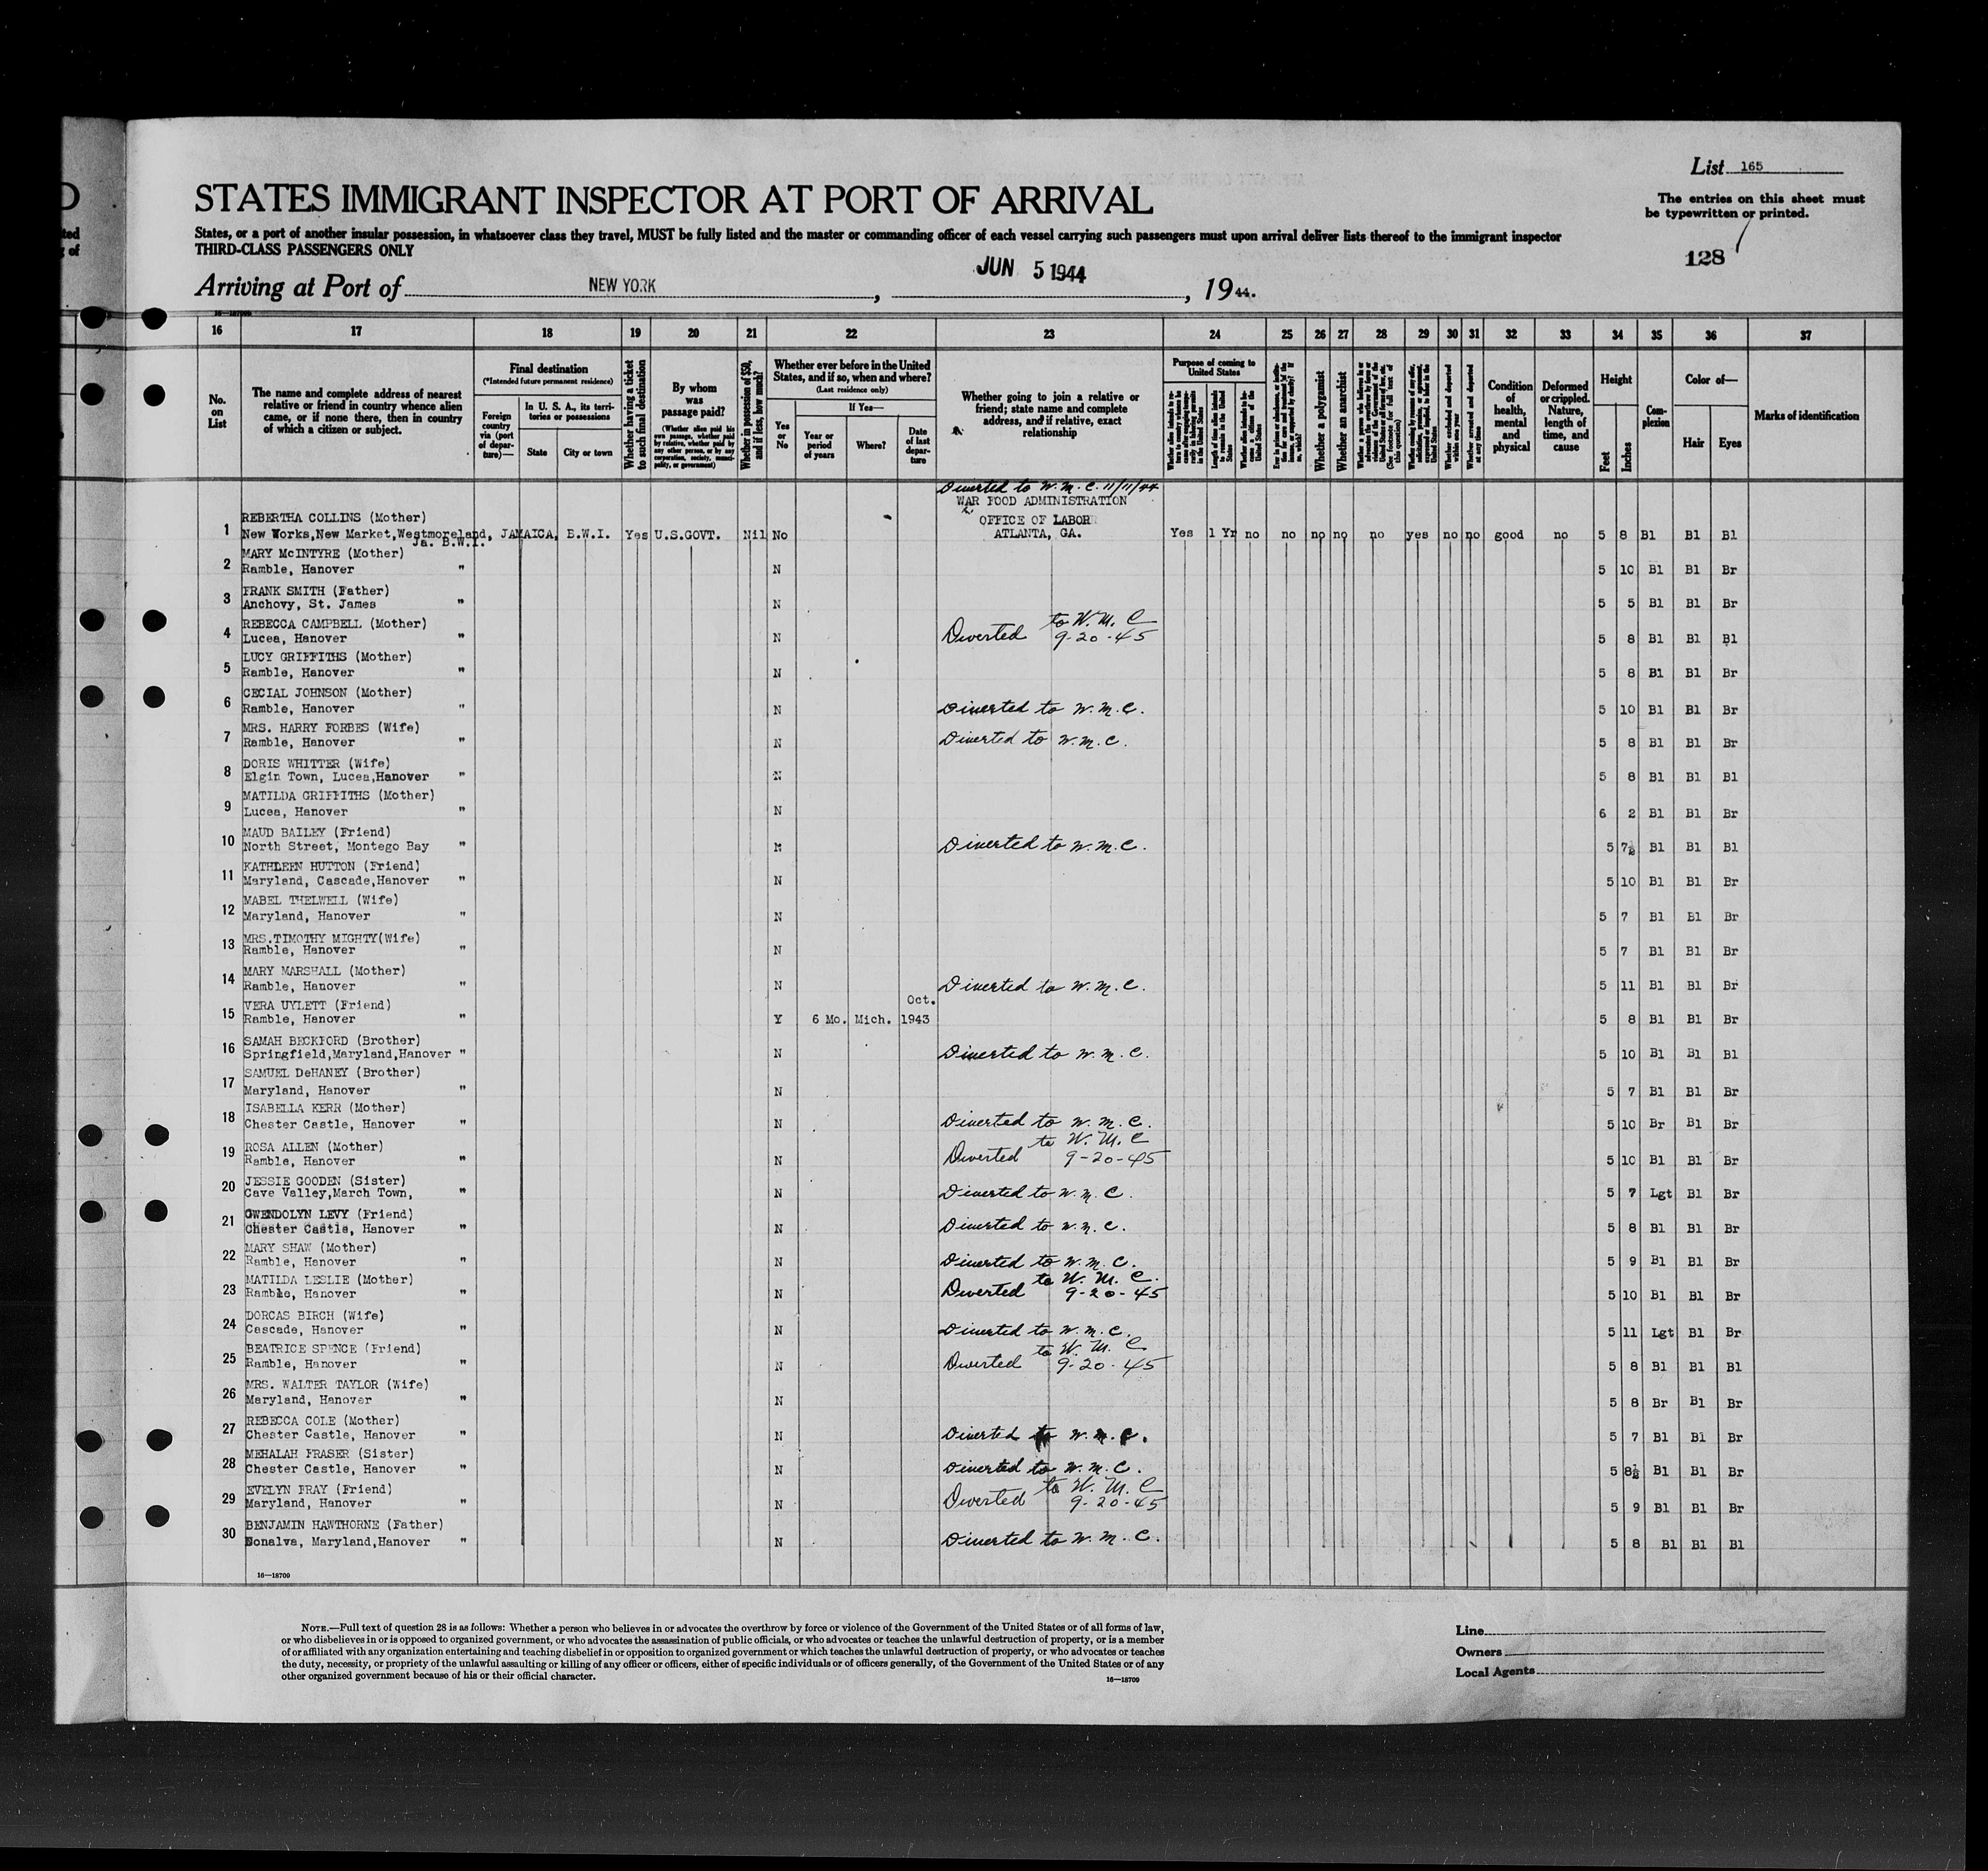 List 165
The entries on this sheet must
be typewritten or printed.
128
STATES IMMIGRANT INSPECTOR AT PORT OF ARRIVAL
States, or a port of another insular possession, in whatsoever class they travel, MUST be fully listed and the master or commanding officer of each vessel carrying such passengers must upon arrival deliver lists thereof to the immigrant inspector
THIRD-CLASS PASSENGERS ONLY
Arriving at Port of NEW YORK, JUN 5 1944, 1944.
16 17 18 19 20 21 22 23 24 25 26 27 28 29 30 31 32 33 34 35 36 37
No. on List
The name and complete address of nearest
relative or friend in country whence alien
came, or if none there, then in country
of which a citizen or subject.
Final destination
(*Intended future permanent residence)
Foreign country via (port of departure)—
In U. S. A., its territories or possessions
State
City or town
Whether having a ticket to such final destination
By whom was passage paid?
(Whether alien paid his own passage, whether paid by relative, whether paid by any other person, or by any corporation, society, municipality, or government)
Whether in possession of $50, and if less, how much?
Whether ever before in the United States, and if so, when and where?
(Last residence only)
Yes or No
If Yes—
Year or period of years
Where?
Date of last departure
Whether going to join a relative or
friend; state name and complete
address, and if relative, exact
relationship
Purpose of coming to United States
Length of time alien intends to remain in the United States
Whether a polygamist
Whether an anarchist
Condition of health, mental and physical
Deformed or crippled. Nature, length of time, and cause
Height
Feet
Inches
Complexion
Color of—
Hair
Eyes
Marks of identification
Diverted to W.M.C. 11/11/44
WAR FOOD ADMINISTRATION
OFFICE OF LABOR
ATLANTA, GA.
1 REBERTHA COLLINS (Mother)
New Works,New Market,Westmoreland, JAMAICA, B.W.I. Yes U.S.GOVT. Nil No Yes 1 Yr no no no no no yes no no good no 5 8 Bl Bl Bl
Ja. B.W.I.
2 MARY McINTYRE (Mother)
Ramble, Hanover " N 5 10 Bl Bl Br
3 FRANK SMITH (Father)
Anchovy, St. James " N 5 5 Bl Bl Br
4 REBECCA CAMPBELL (Mother)
Lucea, Hanover " N Diverted to W.M.C 9-20-45 5 8 Bl Bl Bl
5 LUCY GRIFFITHS (Mother)
Ramble, Hanover " N 5 8 Bl Bl Br
6 CECIAL JOHNSON (Mother)
Ramble, Hanover " N Diverted to W.M.C. 5 10 Bl Bl Br
7 MRS. HARRY FORBES (Wife)
Ramble, Hanover " N Diverted to W.M.C. 5 8 Bl Bl Br
8 DORIS WHITTER (Wife)
Elgin Town, Lucea,Hanover " N 5 8 Bl Bl Bl
9 MATILDA GRIFFITHS (Mother)
Lucea, Hanover " N 6 2 Bl Bl Br
10 MAUD BAILEY (Friend)
North Street, Montego Bay " N Diverted to W.M.C. 5 7½ Bl Bl Bl
11 KATHLEEN HUTTON (Friend)
Maryland, Cascade,Hanover " N 5 10 Bl Bl Br
12 MABEL THELWELL (Wife)
Maryland, Hanover " N 5 7 Bl Bl Br
13 MRS.TIMOTHY MIGHTY(Wife)
Ramble, Hanover " N 5 7 Bl Bl Br
14 MARY MARSHALL (Mother)
Ramble, Hanover " N Diverted to W.M.C. 5 11 Bl Bl Br
15 VERA UYLETT (Friend) Oct.
Ramble, Hanover " Y 6 Mo. Mich. 1943 5 8 Bl Bl Br
16 SAMAH BECKFORD (Brother)
Springfield,Maryland,Hanover " N Diverted to W.M.C. 5 10 Bl Bl Bl
17 SAMUEL DeHANEY (Brother)
Maryland, Hanover " N 5 7 Bl Bl Br
18 ISABELLA KERR (Mother)
Chester Castle, Hanover " N Diverted to W.M.C. 5 10 Br Bl Br
19 ROSA ALLEN (Mother)
Ramble, Hanover " N Diverted to W.M.C 9-20-45 5 10 Bl Bl Br
20 JESSIE GOODEN (Sister)
Cave Valley,March Town, " N Diverted to W.M.C. 5 7 Lgt Bl Br
21 GWENDOLYN LEVY (Friend)
Chester Castle, Hanover " N Diverted to W.M.C. 5 8 Bl Bl Br
22 MARY SHAW (Mother)
Ramble, Hanover " N Diverted to W.M.C. 5 9 Bl Bl Br
23 MATILDA LESLIE (Mother)
Ramble, Hanover " N Diverted to W.M.C. 9-20-45 5 10 Bl Bl Br
24 DORCAS BIRCH (Wife)
Cascade, Hanover " N Diverted to W.M.C. 5 11 Lgt Bl Br
25 BEATRICE SPENCE (Friend)
Ramble, Hanover " N Diverted to W.M.C 9-20-45 5 8 Bl Bl Bl
26 MRS. WALTER TAYLOR (Wife)
Maryland, Hanover " N 5 8 Br Bl Br
27 REBECCA COLE (Mother)
Chester Castle, Hanover " N Diverted to W.M.C. 5 7 Bl Bl Br
28 MEHALAH FRASER (Sister)
Chester Castle, Hanover " N Diverted to W.M.C. 5 8½ Bl Bl Br
29 EVELYN PRAY (Friend)
Maryland, Hanover " N Diverted to W.M.C 9-20-45 5 9 Bl Bl Br
30 BENJAMIN HAWTHORNE (Father)
Nonalva, Maryland,Hanover " N Diverted to W.M.C. 5 8 Bl Bl Bl
16—18709
NOTE.—Full text of question 28 is as follows: Whether a person who believes in or advocates the overthrow by force or violence of the Government of the United States or of all forms of law,
or who disbelieves in or is opposed to organized government, or who advocates the assassination of public officials, or who advocates or teaches the unlawful destruction of property, or is a member
of or affiliated with any organization entertaining and teaching disbelief in or opposition to organized government or which teaches the unlawful destruction of property, or who advocates or teaches
the duty, necessity, or propriety of the unlawful assaulting or killing of any officer or officers, either of specific individuals or of officers generally, of the Government of the United States or of any
other organized government because of his or their official character.
16—18709
Line
Owners
Local Agents